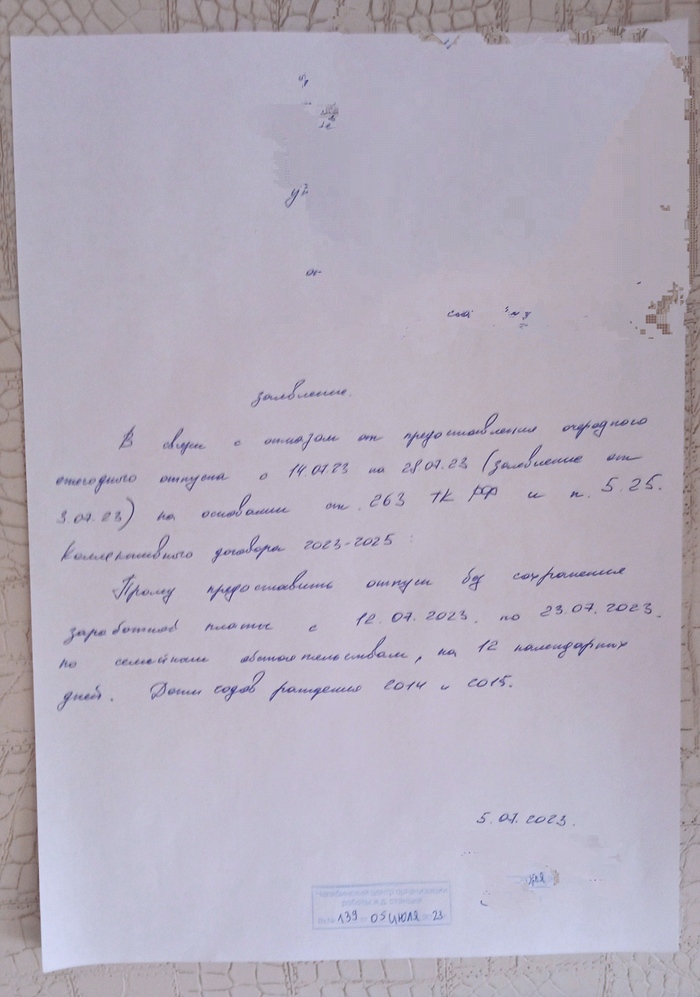 от
заявление.
В связи с отказом от предоставления очередного
ежегодного отпуска с 14.07.23 по 28.07.23 (заявление от
3.07.23) на основании ст. 263 ТК РФ и п. 5.25.
Коллективного договора 2023-2025:
Прошу предоставить отпуск без сохранения
заработной платы с 12.07.2023. по 23.07.2023.
по семейным обстоятельствам, на 12 календарных
дней. Дети годов рождения 2014 и 2015.
5.07.2023.
Челябинский центр организации
работы ж.д. станций
Вх.№ 139 05 ИЮЛЯ 23